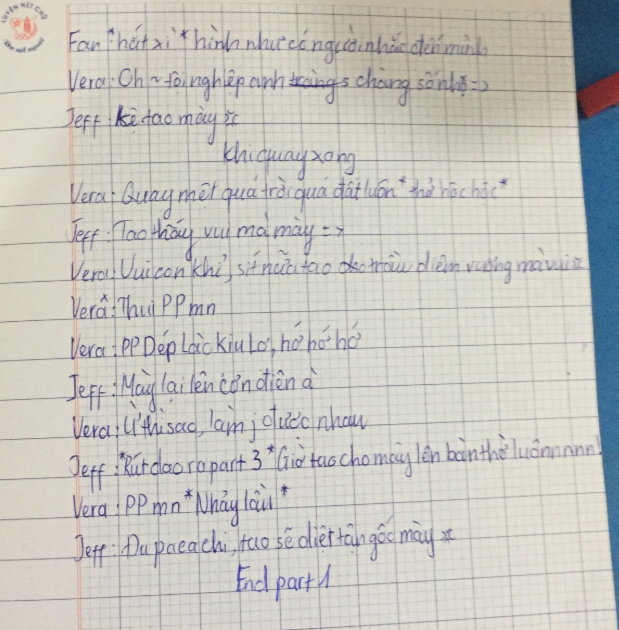 LUYỆN NÉT CHỮ
Fan *hắt xì* hình như có người nhắc đến mình
Vera: Oh~ tội nghiệp anh chàng số nhọ =>
Jeff: Kệ tao mày :<
Khi quay xong
Vera: Quay mệt quá trời quá đất luôn *thở hộc hộc*
Jeff: Tao thấy vui mà mày =>
Vera: Vui con khỉ, sít nữa tao chầu diêm vương mà vui
Vera: Thui PP mn
Vera: PP Dép Làc kiu lơ, hố hố hố
Jeff: Mày lại lên cơn điên à
Vera: Ừ thì sao, làm j được nhau
Jeff: *Rút dao ra part 3* Giờ tao cho mày lên bàn thờ luônnnnn!
Vera: PP mn *Nhảy lầu*
Jeff: Đu pacachi, tao sẽ diệt tận gốc mày
End part 1